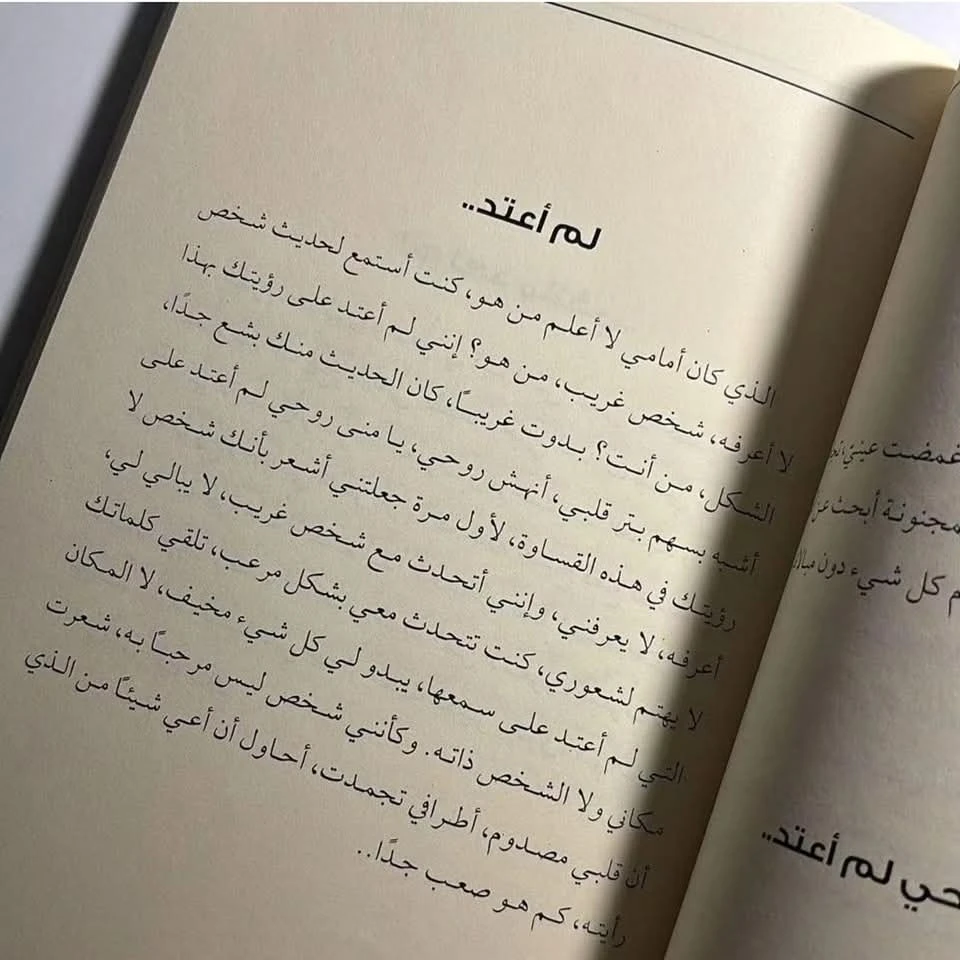 لم أعتد..
الذي كان أمامي لا أعلم من هو، كنت أستمع لحديث شخص
لا أعرفه، شخص غريب، من هو؟ إنني لم أعتد على رؤيتك بهذا
الشكل، من أنت؟ بدوت غريبًا، كان الحديث منك بشع جدًا،
أشبه بسهم بتر قلبي، أنهش روحي، يا منى روحي لم أعتد على
رؤيتك في هذه القساوة، لأول مرة جعلتني أشعر بأنك شخص لا
أعرفه، لا يعرفني، وإنني أتحدث مع شخص غريب، لا يبالي لي،
لا يهتم لشعوري، كنت تتحدث معي بشكل مرعب، تلقي كلماتك
التي لم أعتد على سمعها، يبدو لي كل شيء مخيف، لا المكان
مكاني ولا الشخص ذاته. وكأنني شخص ليس مرحبًا به، شعرت
أن قلبي مصدوم، أطرافي تجمدت، أحاول أن أعي شيئًا من الذي
رأيته، كم هو صعب جدًا..
غمضت عيني
مجنونة أبحث عن
كل شيء دون
حي لم أعتد..